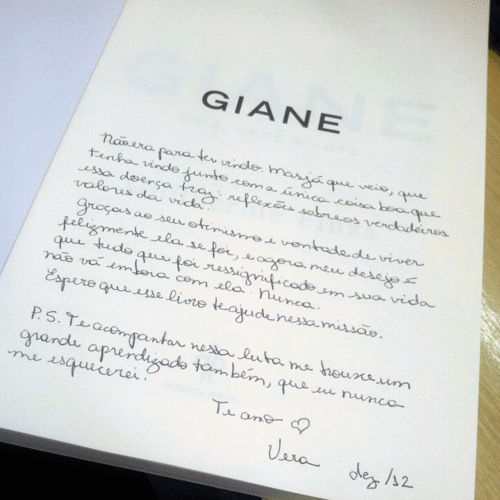 GIANE
Não era para ter vindo. Mas já que veio, que
tenha vindo junto com a única coisa boa que
essa doença traz: reflexões sobre os verdadeiros
valores da vida.
Graças ao seu otimismo e vontade de viver
felizmente ela se foi, e agora meu desejo é
que tudo que foi ressignificado em sua vida
não vá embora com ela. Nunca.
Espero que esse livro te ajude nessa missão.
P.S. Te acompanhar nessa luta me trouxe um
grande aprendizado também, que eu nunca
me esquecerei.
Te amo ♡
Vera dez/12